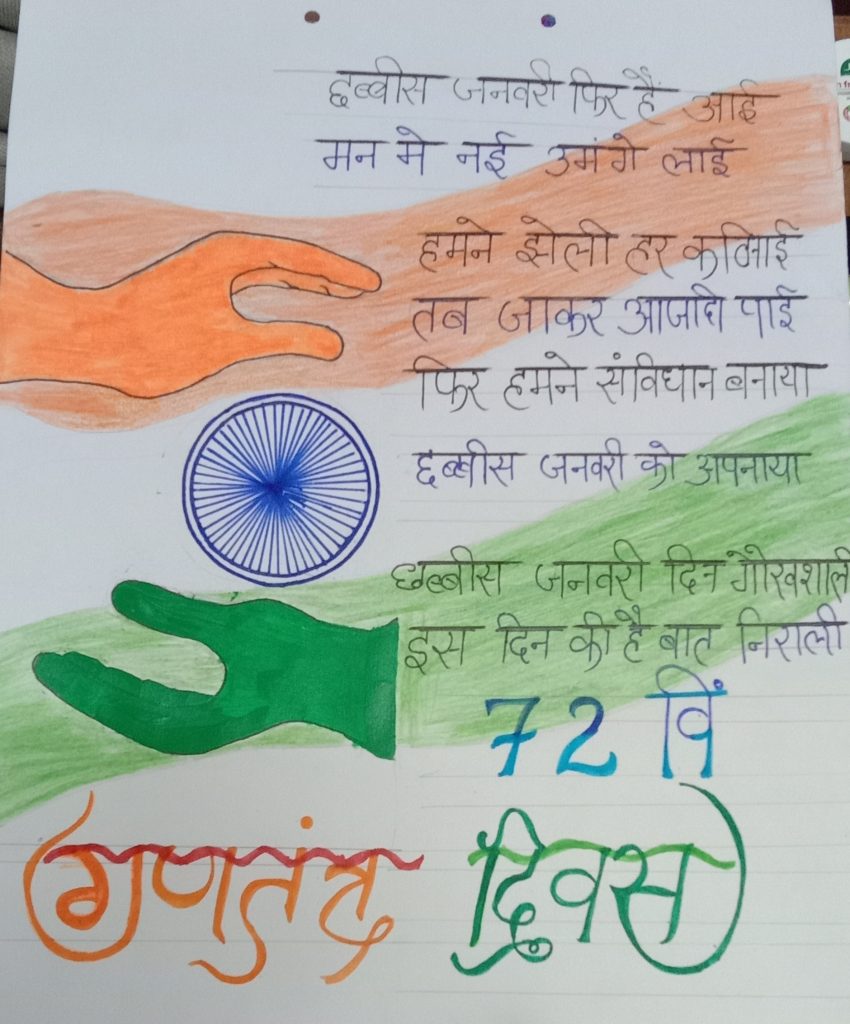 छब्बीस जनवरी फिर है आई
मन मे नई उमंगे लाई
हमने झेली हर कठिनाई
तब जाकर आजादी पाई
फिर हमने संविधान बनाया
छब्बीस जनवरी को अपनाया
छब्बीस जनवरी दिन गौरवशाली
इस दिन की है बात निराली
72 विं
गणतंत्र दिवस